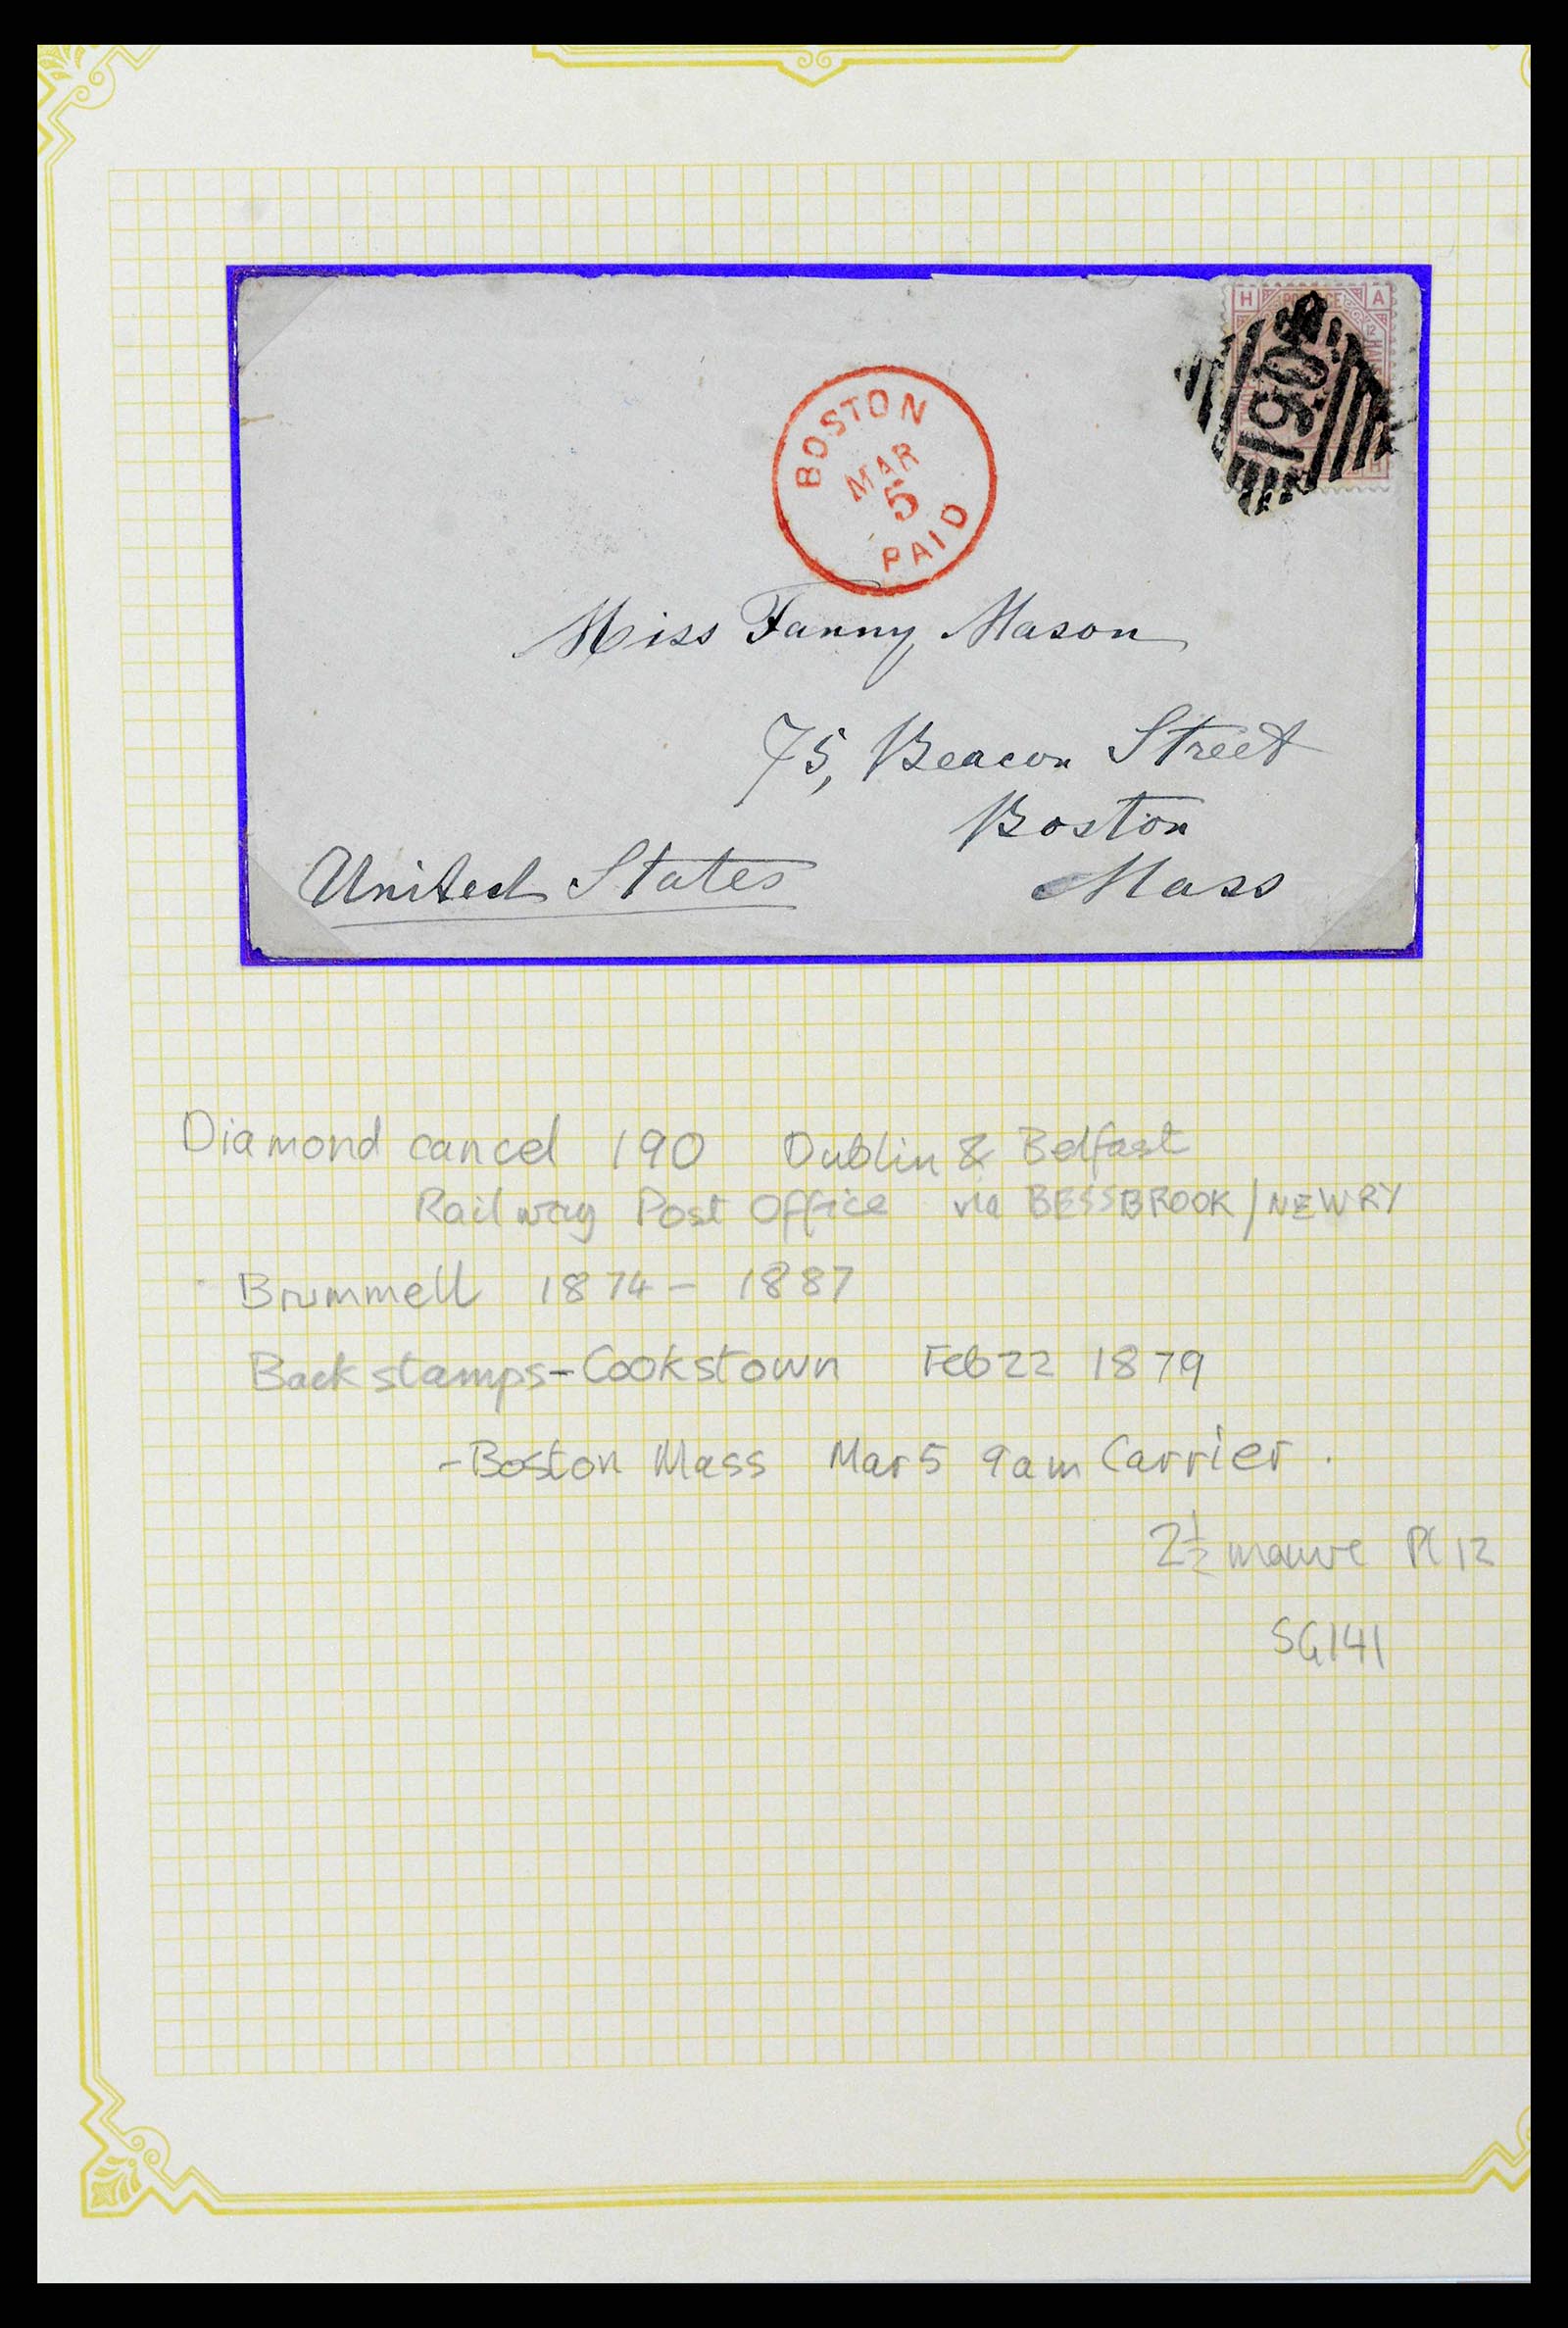 H A
12
190
BOSTON
MAR
5
PAID
Miss Fanny Mason
75, Beacon Street
Boston
United States Mass
Diamond cancel 190 Dublin & Belfast
Railway Post Office via BESSBROOK/NEWRY
Brummell 1874 - 1887
Backstamps - Cookstown Feb 22 1879
- Boston Mass Mar 5 9am Carrier.
2½ mauve Pl 12
SG141